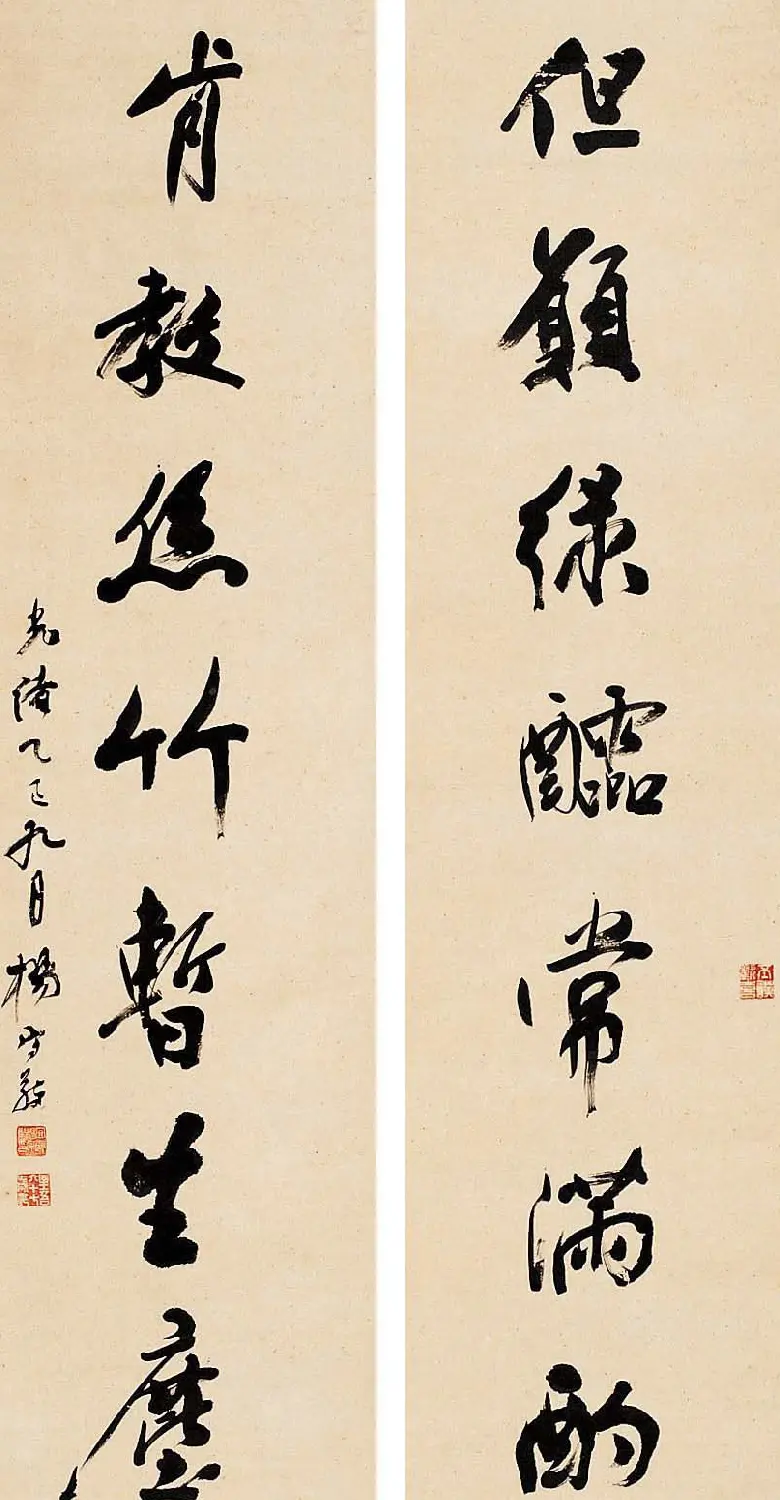 但願綠醽常滿酌
肯教絲竹暫生塵
光緒乙巳九月楊守敬